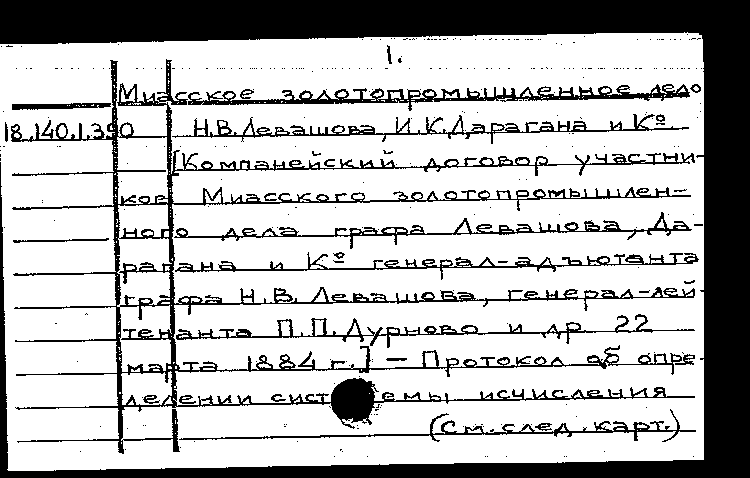 1.
Миасское золотопромышленное дело
18.140.1.390 Н.В.Левашова, И.К.Дарагана и Kº.
[Компанейский договор участни-
ков Миасского золотопромышлен-
ного дела графа Левашова, Да-
рагана и Kº генерал-адъютанта
графа Н.В. Левашова, генерал-лей-
тенанта П.П. Дурново и др 22
марта 1884 г.] – Протокол об опре-
делении системы исчисления
(См. след. карт.)